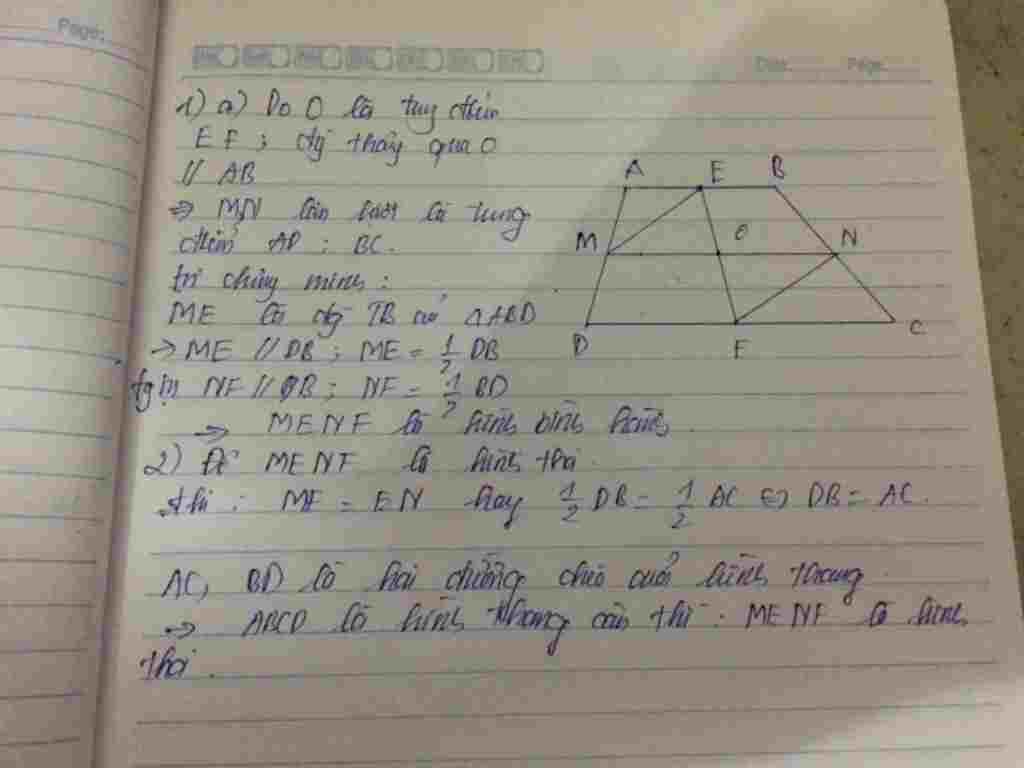 Page:
Date Page
1) a) Do O là trung điểm
EF ; đg thẳng qua O
// AB
=> M,N lần lượt là trung
điểm AD ; BC.
ta chứng minh :
ME là đg TB của △ABD
→ ME // DB ; ME = 1/2 DB
NF // DB ; NF = 1/2 BD
=> MENF là hình bình hành
2) Để MENF là hình thoi
thì : ME = EN hay 1/2 DB = 1/2 AC <=> DB = AC.
AC, BD là hai đường chéo của hình thang
=> ABCD là hình thang cân thì : MENF là hình
thoi .
A E B
M O N
D F C